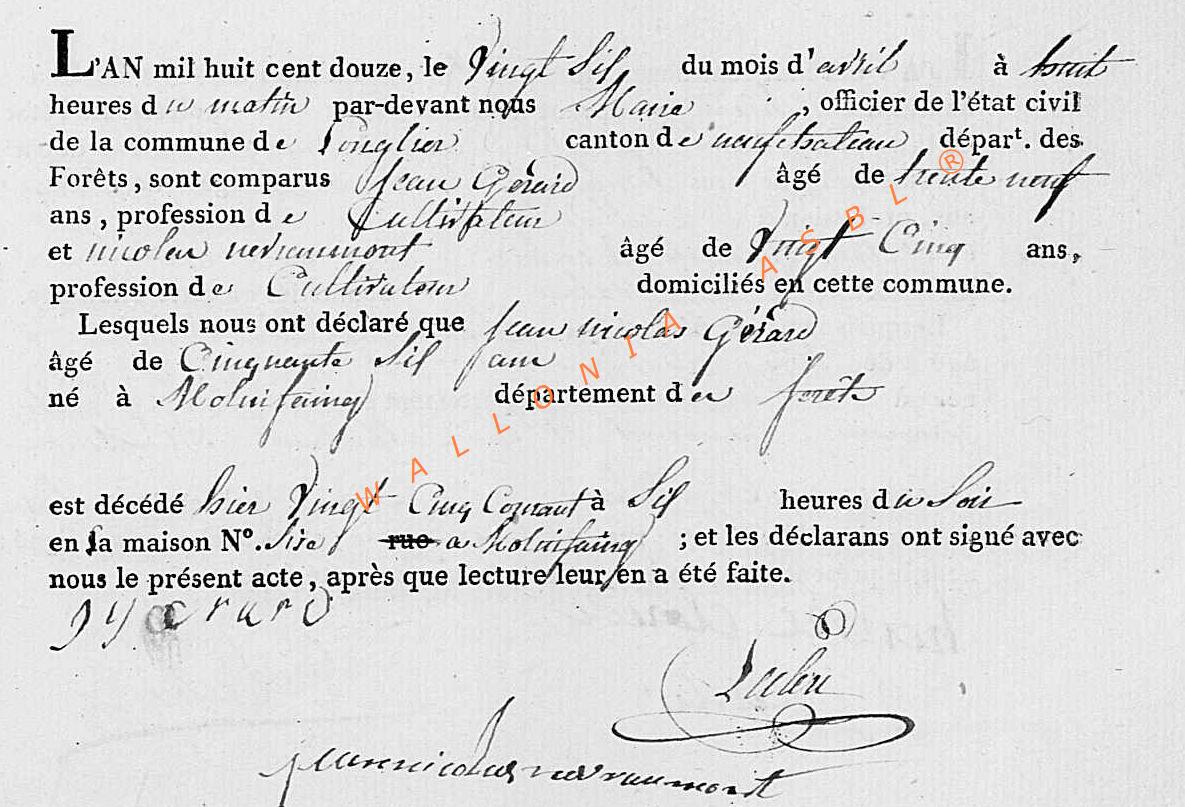 L'AN mil huit cent douze, le Vingt Six du mois d'avril à huit
heures du matin par-devant nous Maire , officier de l'état civil
de la commune de Longlier canton de neufchateau départ. des
Forêts, sont comparus Jean Gérard âgé de trente neuf
ans, profession de Cultivateur
et nicolas nevraumont âgé de Vingt Cinq ans,
profession de Cultivateur domiciliés en cette commune.
Lesquels nous ont déclaré que Jean nicolas Gérard
âgé de Cinquante Six ans
né à Molinfaing département des forêts
est décédé hier Vingt Cinq Courant à Six heures du Soir
en sa maison N°. Sise rue a Molinfaing ; et les déclarans ont signé avec
nous le présent acte, après que lecture leur en a été faite.
J gerard
jean nicolas nevraumont
WALLONIA ASBL ®